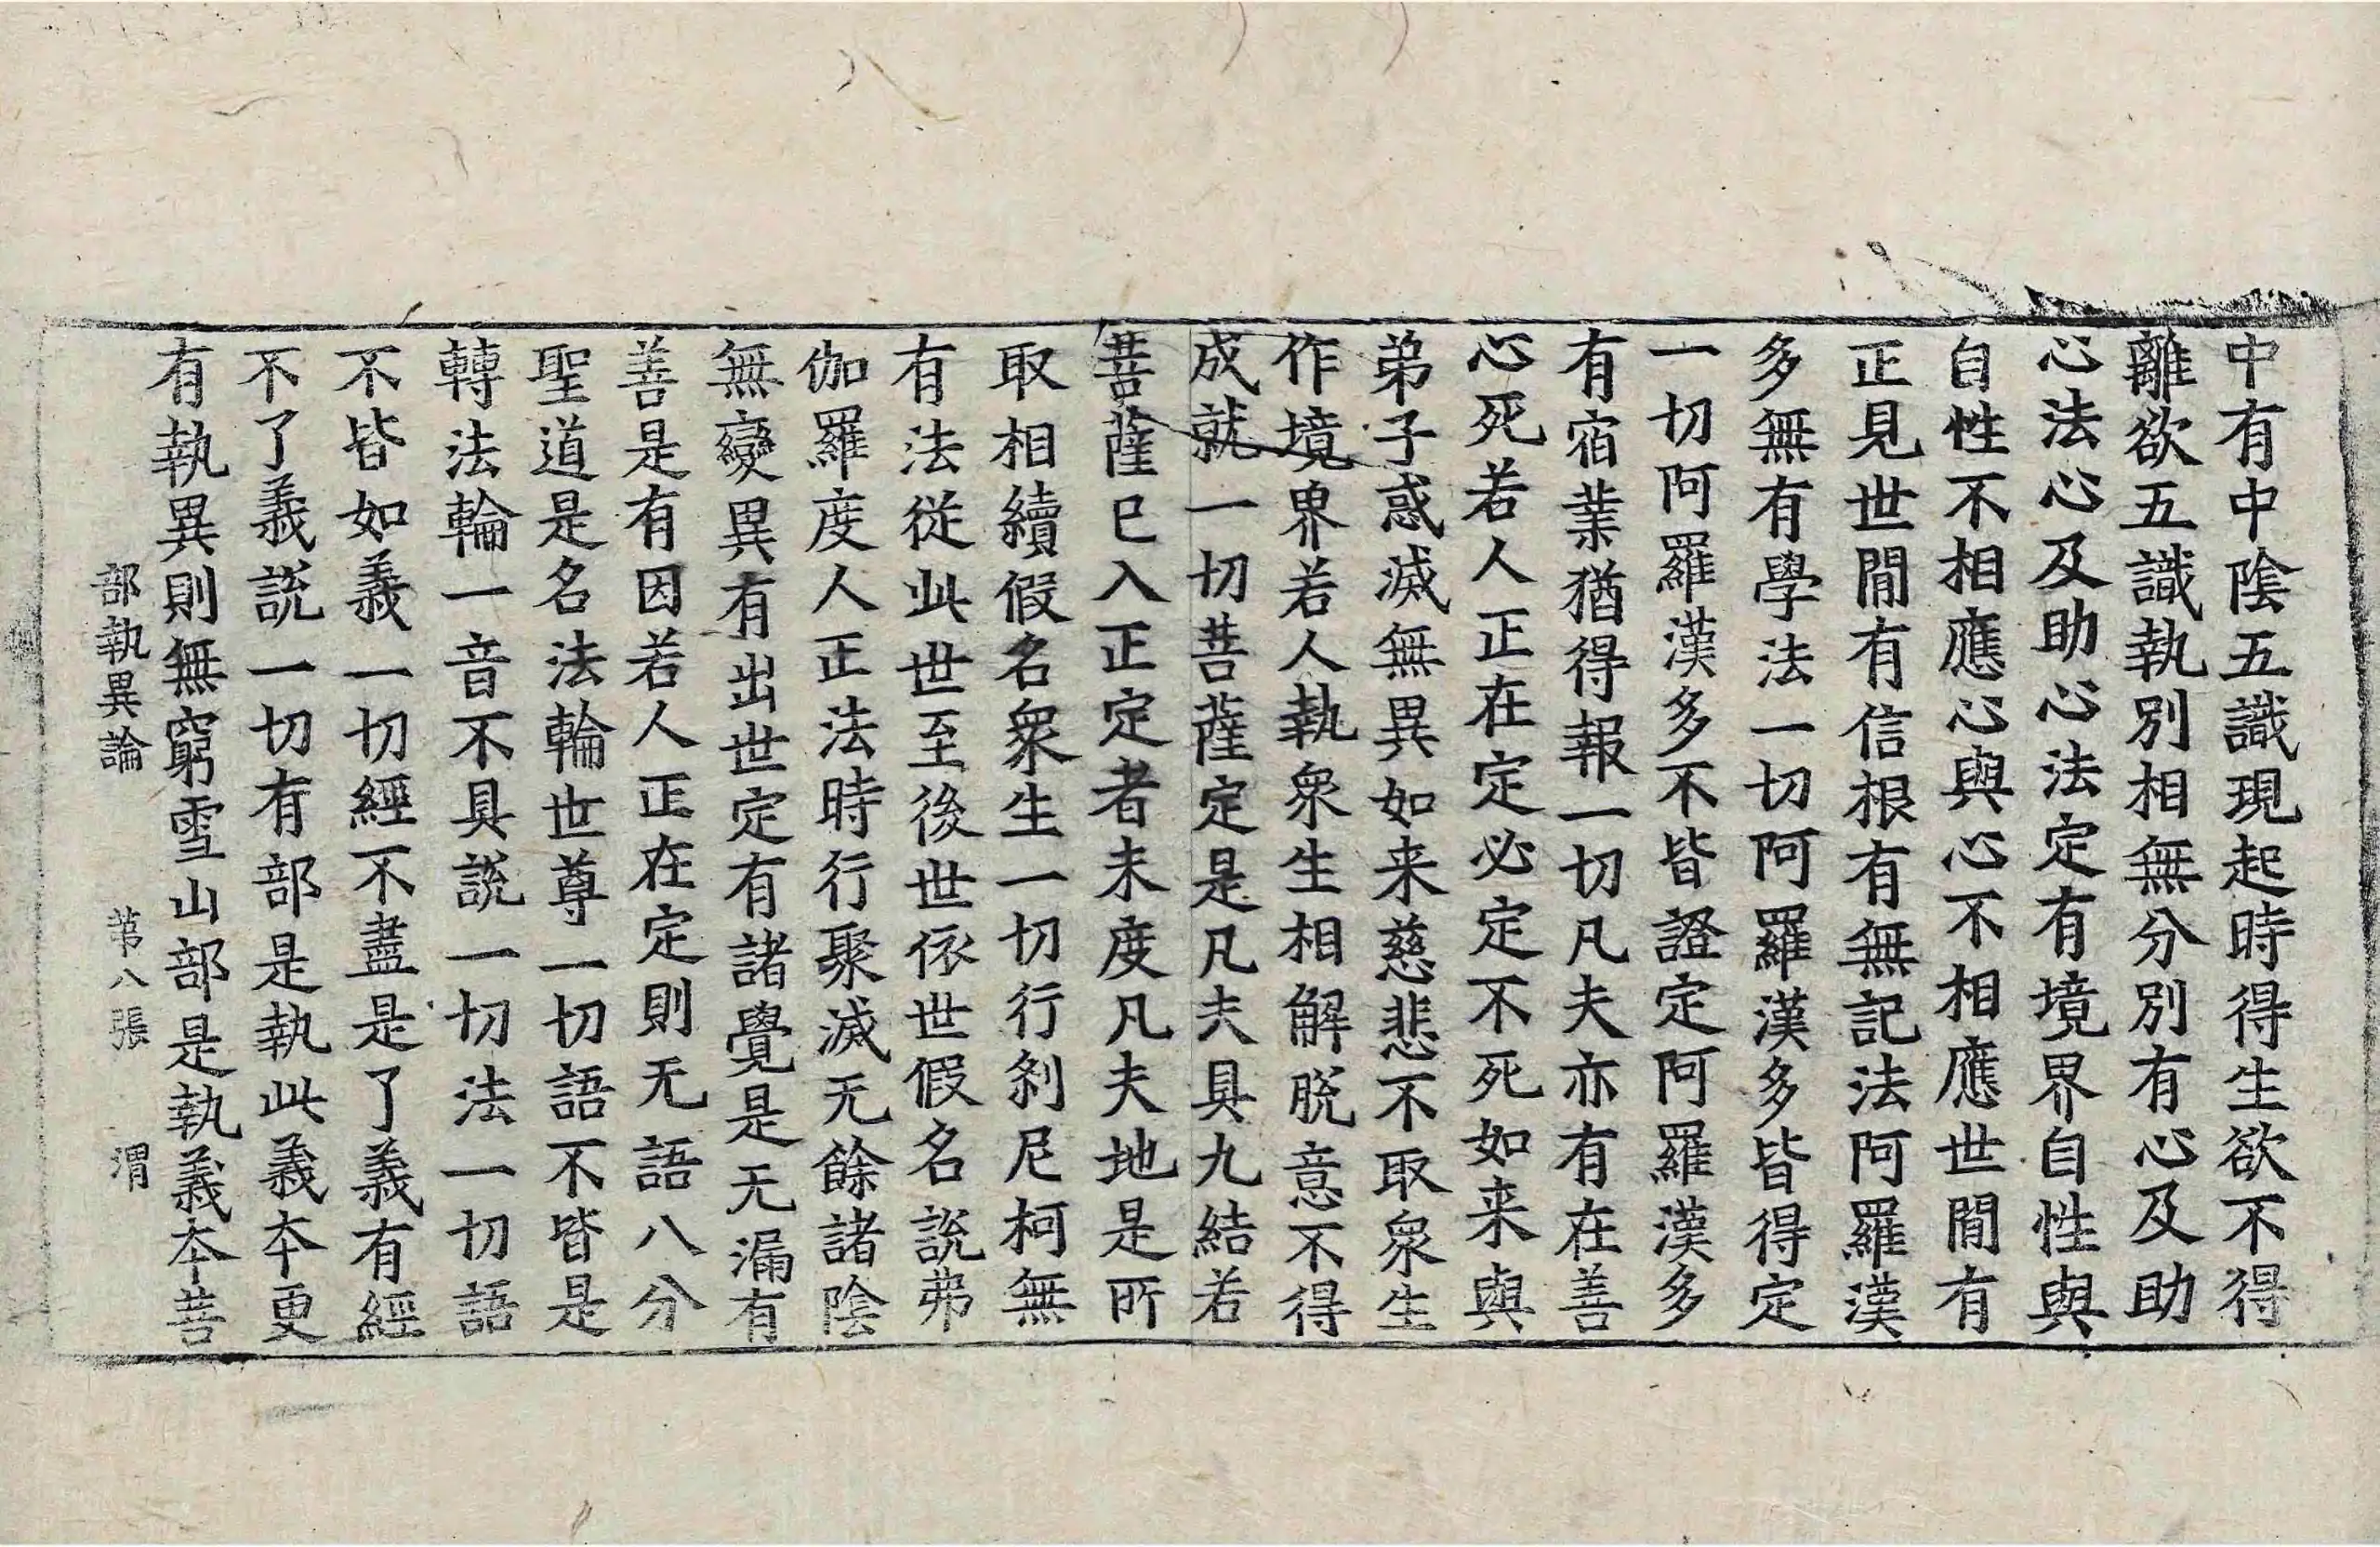 中有中陰五識現起時得生欲不得
離欲五識執別相無分別有心及助
心法心及助心法定有境界自性與
自性不相應心與心不相應世間有
正見世間有信根有無記法阿羅漢
多無有學法一切阿羅漢多皆得定
一切阿羅漢多不皆證定阿羅漢多
有宿業猶得報一切凡夫亦有在善
心死若人正在定必定不死如来與
弟子惑滅無異如来慈悲不取衆生
作境界若人執衆生相解脫意不得
成就一切菩薩定是凡夫具九結若
菩薩已入正定者未度凡夫地是所
取相續假名衆生一切行刹尼柯無
有法從此世至後世依世假名說弗
伽羅度人正法時行聚滅无餘諸陰
無變異有出世定有諸覺是无漏有
善是有因若人正在定則无語八分
聖道是名法輪世尊一切語不皆是
轉法輪一音不具說一切法一切語
不皆如義一切經不盡是了義有經
不了義說一切有部是執此義本更
有執異則無窮雪山部是執義本菩
部執異論 第八張 渭